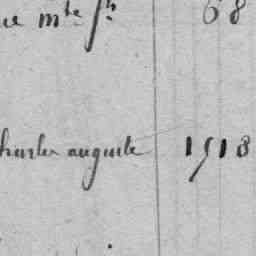 ue mbe jh 68
harles auguste 1518